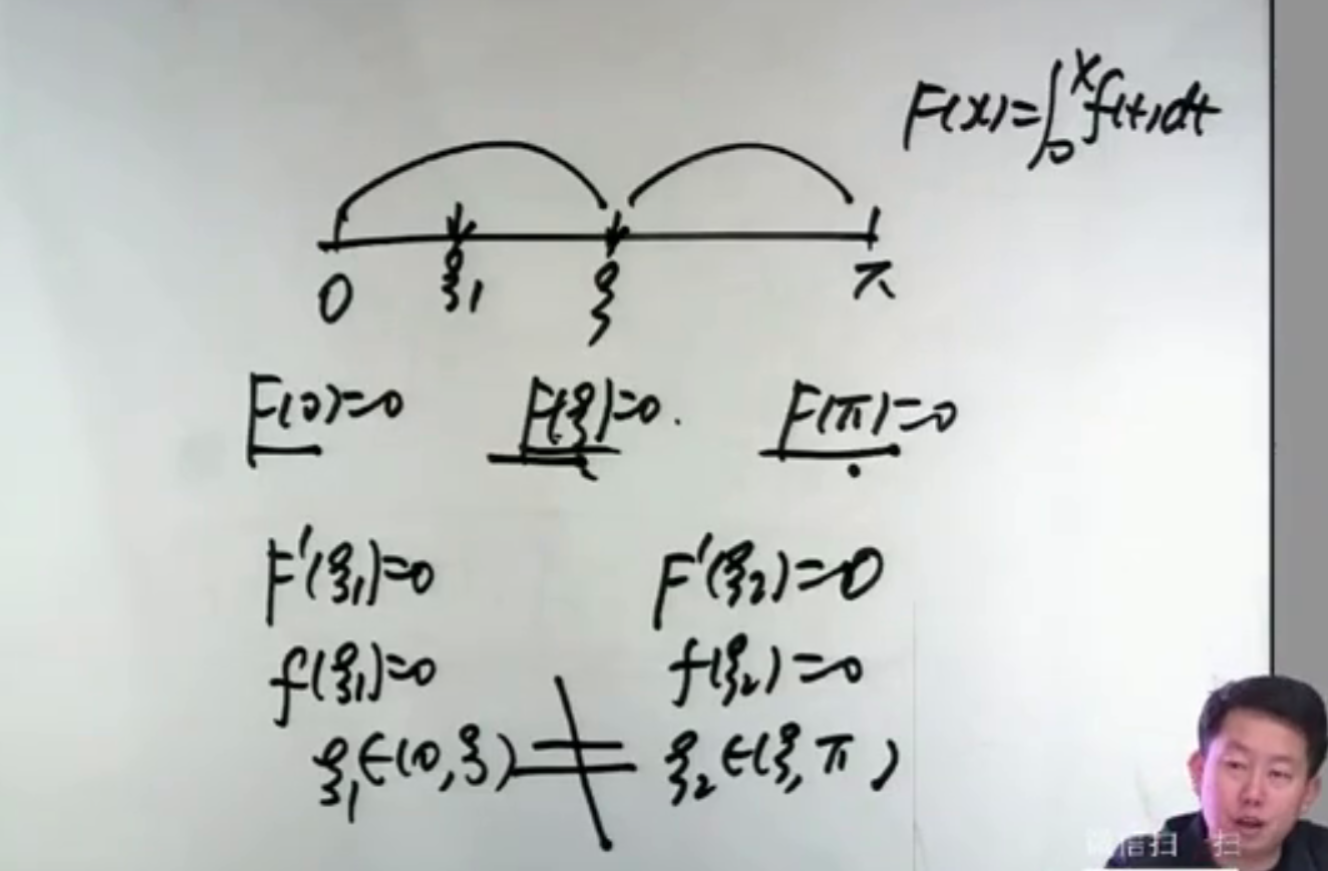 F(x)=∫₀ˣf(t)dt
0 ξ₁ ξ π
F(0)=0 F(ξ)=0. F(π)=0
F'(ξ₁)=0 F'(ξ₂)=0
f(ξ₁)=0 f(ξ₂)=0
ξ₁∈(0,ξ) ≠ ξ₂∈(ξ,π)
微信扫一扫